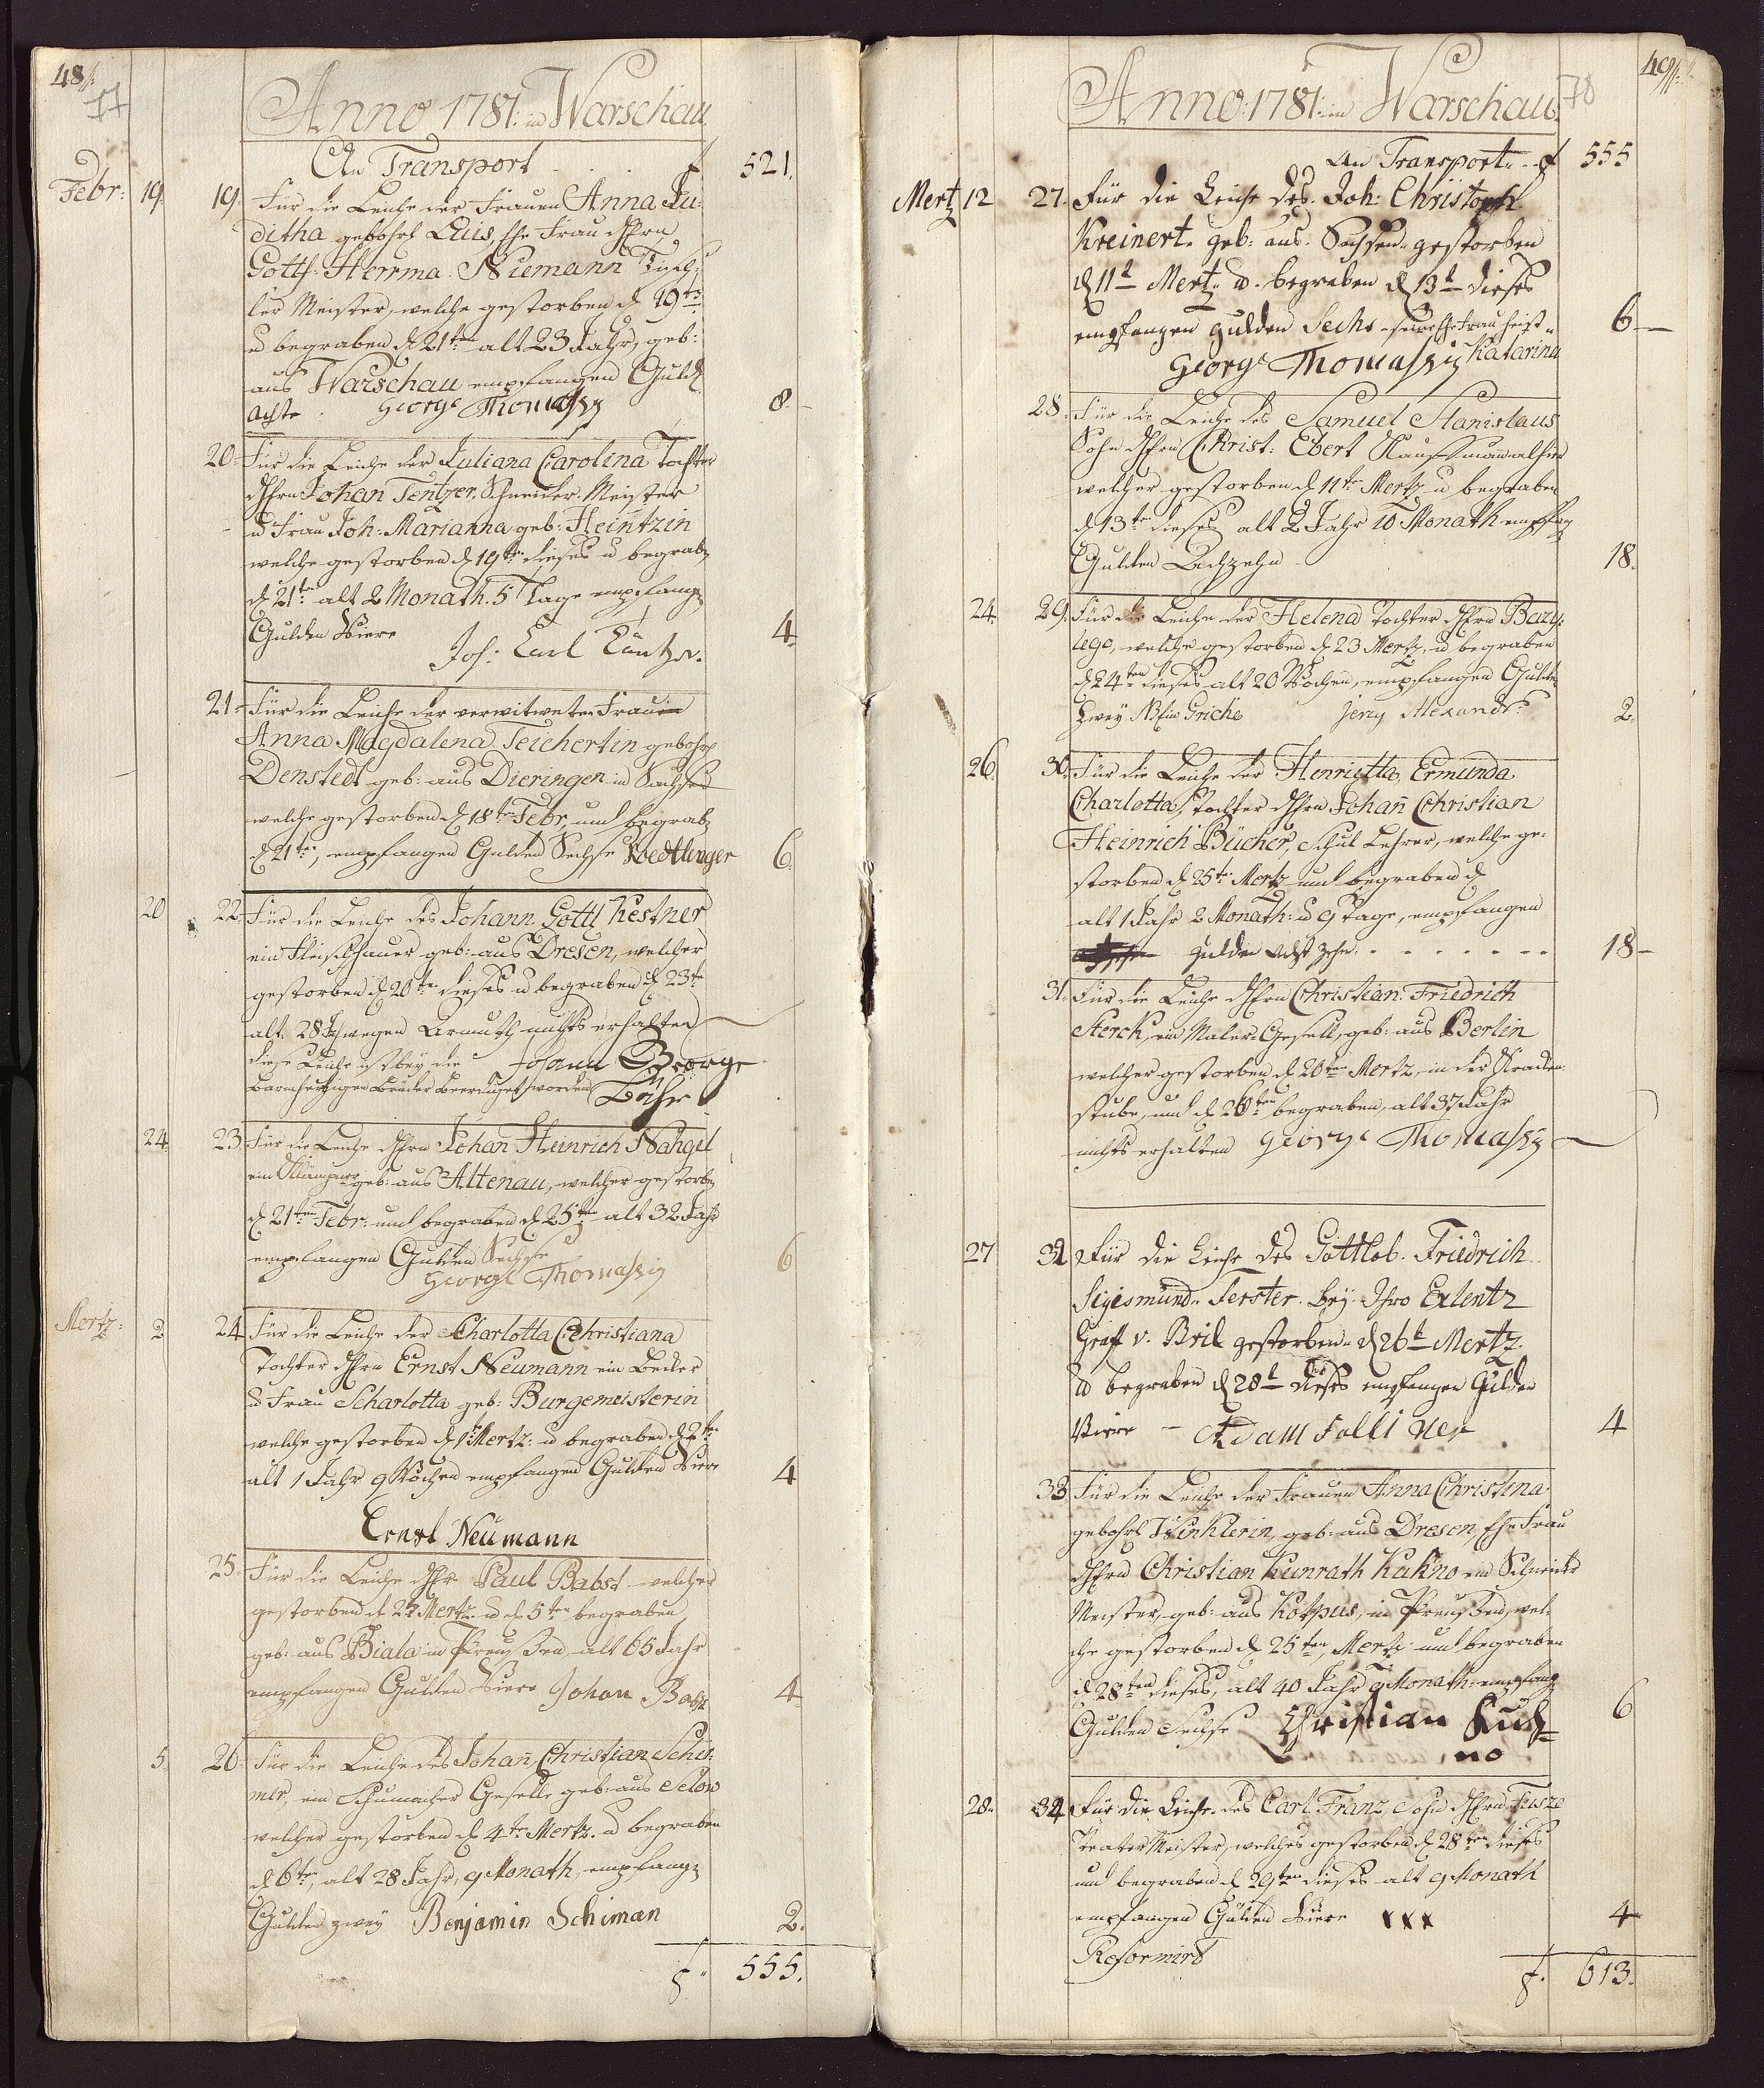 48/:
77
Anno 1781: in Warschau
An Transport . . . f 521.
Febr: 19. 19. Für die Leiche der Frauen Anna Ju:
ditha gebohrl Luis, Ehe Frau dHrn
Gottf: Herrma. Niemann Tischl:
ler Meister, welche gestorben d 19ts
u begraben d 21ten alt 23 Jahr, geb:
aus Warschau empfangen Guld
achte George Thomassy 8.
20. Für die Leiche der Juliana Carolina Tochter
dHrn Johan Tentzer. Schneider. Meister
u Frau Joh: Marianna geb: Heintzin
welche gestorben d 19ten dieses u begrab
d 21ten alt 2 Monath. 5 Tage empfang
Gulden Viere Joh: Carl 4.
21. Für die Leiche der verwitweten Frauen
Anna Magdalena Teichertin gebohrl
Denstedt geb: aus Dieringen in Sachsen
welche gestorben d 18te Febr, und begrab
d 21te, empfangen Gulden Sechse Roedtlinger 6.
20 22. Für die Leiche des Johann Gottl Kestner
ein Fleischhauer geb: aus Dresen, welcher
gestorben d 20ten dieses u begraben d 23te
alt. 28 J wegen Armuth nichts erhalten
diese Leiche ist bey die Johann George
Barmhertzigen Brüder Beerdiget worden
24. 23 Für die Leiche dHrn Johan Heinrich Nahgel
ein geb: aus Altenau, welcher gestorbe
d 21ten Febr: und begraben d 25ten alt 32 Jahr
empfangen Gulden Sechse 6
George Thomassy
Mertz: 2 24 Für die Leiche der Scharlotta Christiana
Tochter dHrn Ernst Neumann ein Becker
u Frau Scharlotta geb: Burgemeisterin
welche gestorben d 1t Mertz: u begraben d 2te
alt 1 Jahr 9 Wochen empfangen Gulden Viere 4
Ernst Neumann
25. Für die Leiche dHr Paul Babst welcher
gestorben d 2t Mertz u d 5ten begraben
geb: aus Biala in Preußen, alt 65 Jahr
empfangen Gulden Viere Johan Babst 4
5. 26. Für die Leiche des Johan Christian Schi:
mer, ein Schumacher Geselle geb: aus Selow
welcher gestorben d 4te Mertz. u begraben
d 6te, alt 28 Jahr, 9 Monath, empfang
Gulden zwey Benjamin Schiman 2.
f. 555.
49/:
78
Anno 1781: in Warschau
An Transport . . f 555
Mertz 12 27. Für die Leiche des. Joh: Christoph
Kreinert. geb: aus. Sachsen. gestorben
d 11t Mertz u. begraben d 13t dieses
empfangen gulden Sechs - seine Ehe Frau heist 6
George Thomassy Katarina
28. Für die Leiche des Samuel Stanislaus
Sohn dHrn Christ: Ebert Kaufman alhier
welcher gestorben d 11te Mertz u begraben
d 13te dieses alt 2 Jahr 10 Monath empfang
Gulden Achzehn 18.
24. 29. Für die Leiche der Helena Tochter dHrn Bazy:
lego, welche gestorben d 23 Mertz, u begraben
d 24ten dieses alt 20 Wochen, empfangen Gulde
Zwey NB ein Griche Jerzy Alexandr 2.
26. 30. Für die Leiche der Henrietta, Ermunda
Charlotta, tochter dHrn Johan Christian
Heinrich Bücher, Schul Lehrer, welche ge:
storben d 25te Mertz und begraben d
alt 1 Jahr 2 Monath: u 9 Tage, empfangen
Gulden Acht zehn 18
31. Für die Leiche dHrn Christian Friedrich
Sterck, ein Maler Gesell, geb: aus Berlin
welcher gestorben d 20ten Mertz, in der Kracken:
stube, und d 26ten begraben, alt 37 Jahr
nichts erhalten George Thomassy
27 32 Für die Leiche des Gottlob. Friedrich.
Sigismund. Ferster. bey. Ihro Exlentz
Graff v. Bril gestorben. d 26t Mertz.
u begraben d 28t dieses empfangen Gulden
Viere - Adam Follner 4
33. Für die Leiche der Frauen Anna Christina
gebohrl Winklerin, geb: aus Dresen, Ehe Frau
dHrn Christian Kunrath Kukno ein Schneider
Meister, geb: aus Kotpus, in Preußen, wel:
che gestorben d 25ten, Mertz: und begraben
d 28ten dieses, alt 40 Jahr 9 Monath: empfang
Gulden Sechse Christian Kuch= 6
no
28. 34 Für die Leiche des Carl Franz, Sohn dHrn Fusze
Teater Meister, welches gestorben d 28ten dieses
und begraben d 29ten dieses alt 9 Monath
empfangen Gulden Viere xxx 4
Reformirt
f. 613.